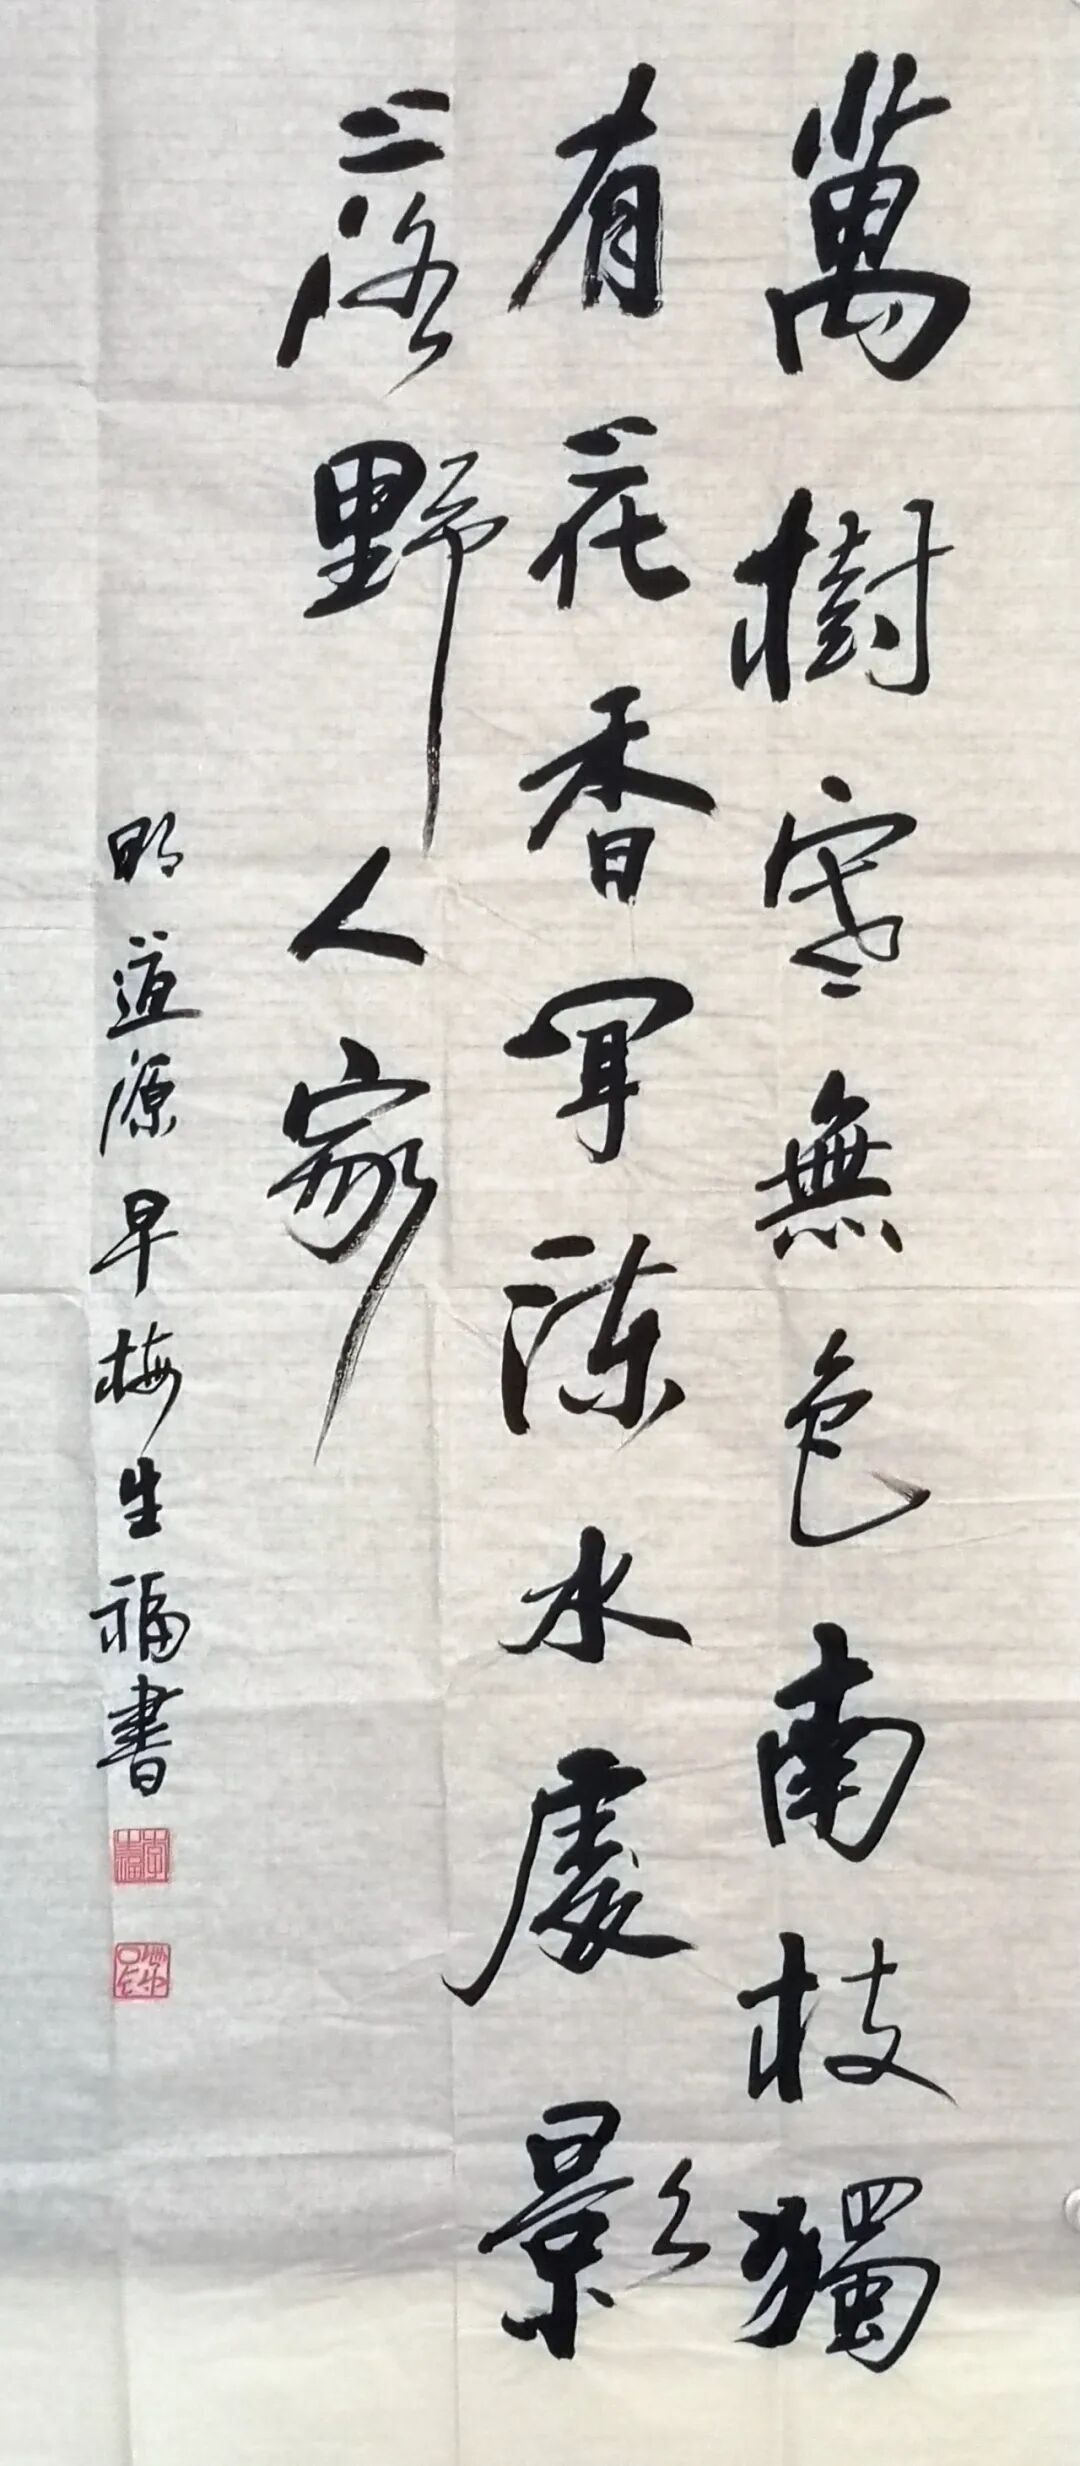 萬樹寒無色南枝獨
有花香聞流水處影
落野人家
明道源早梅生福書